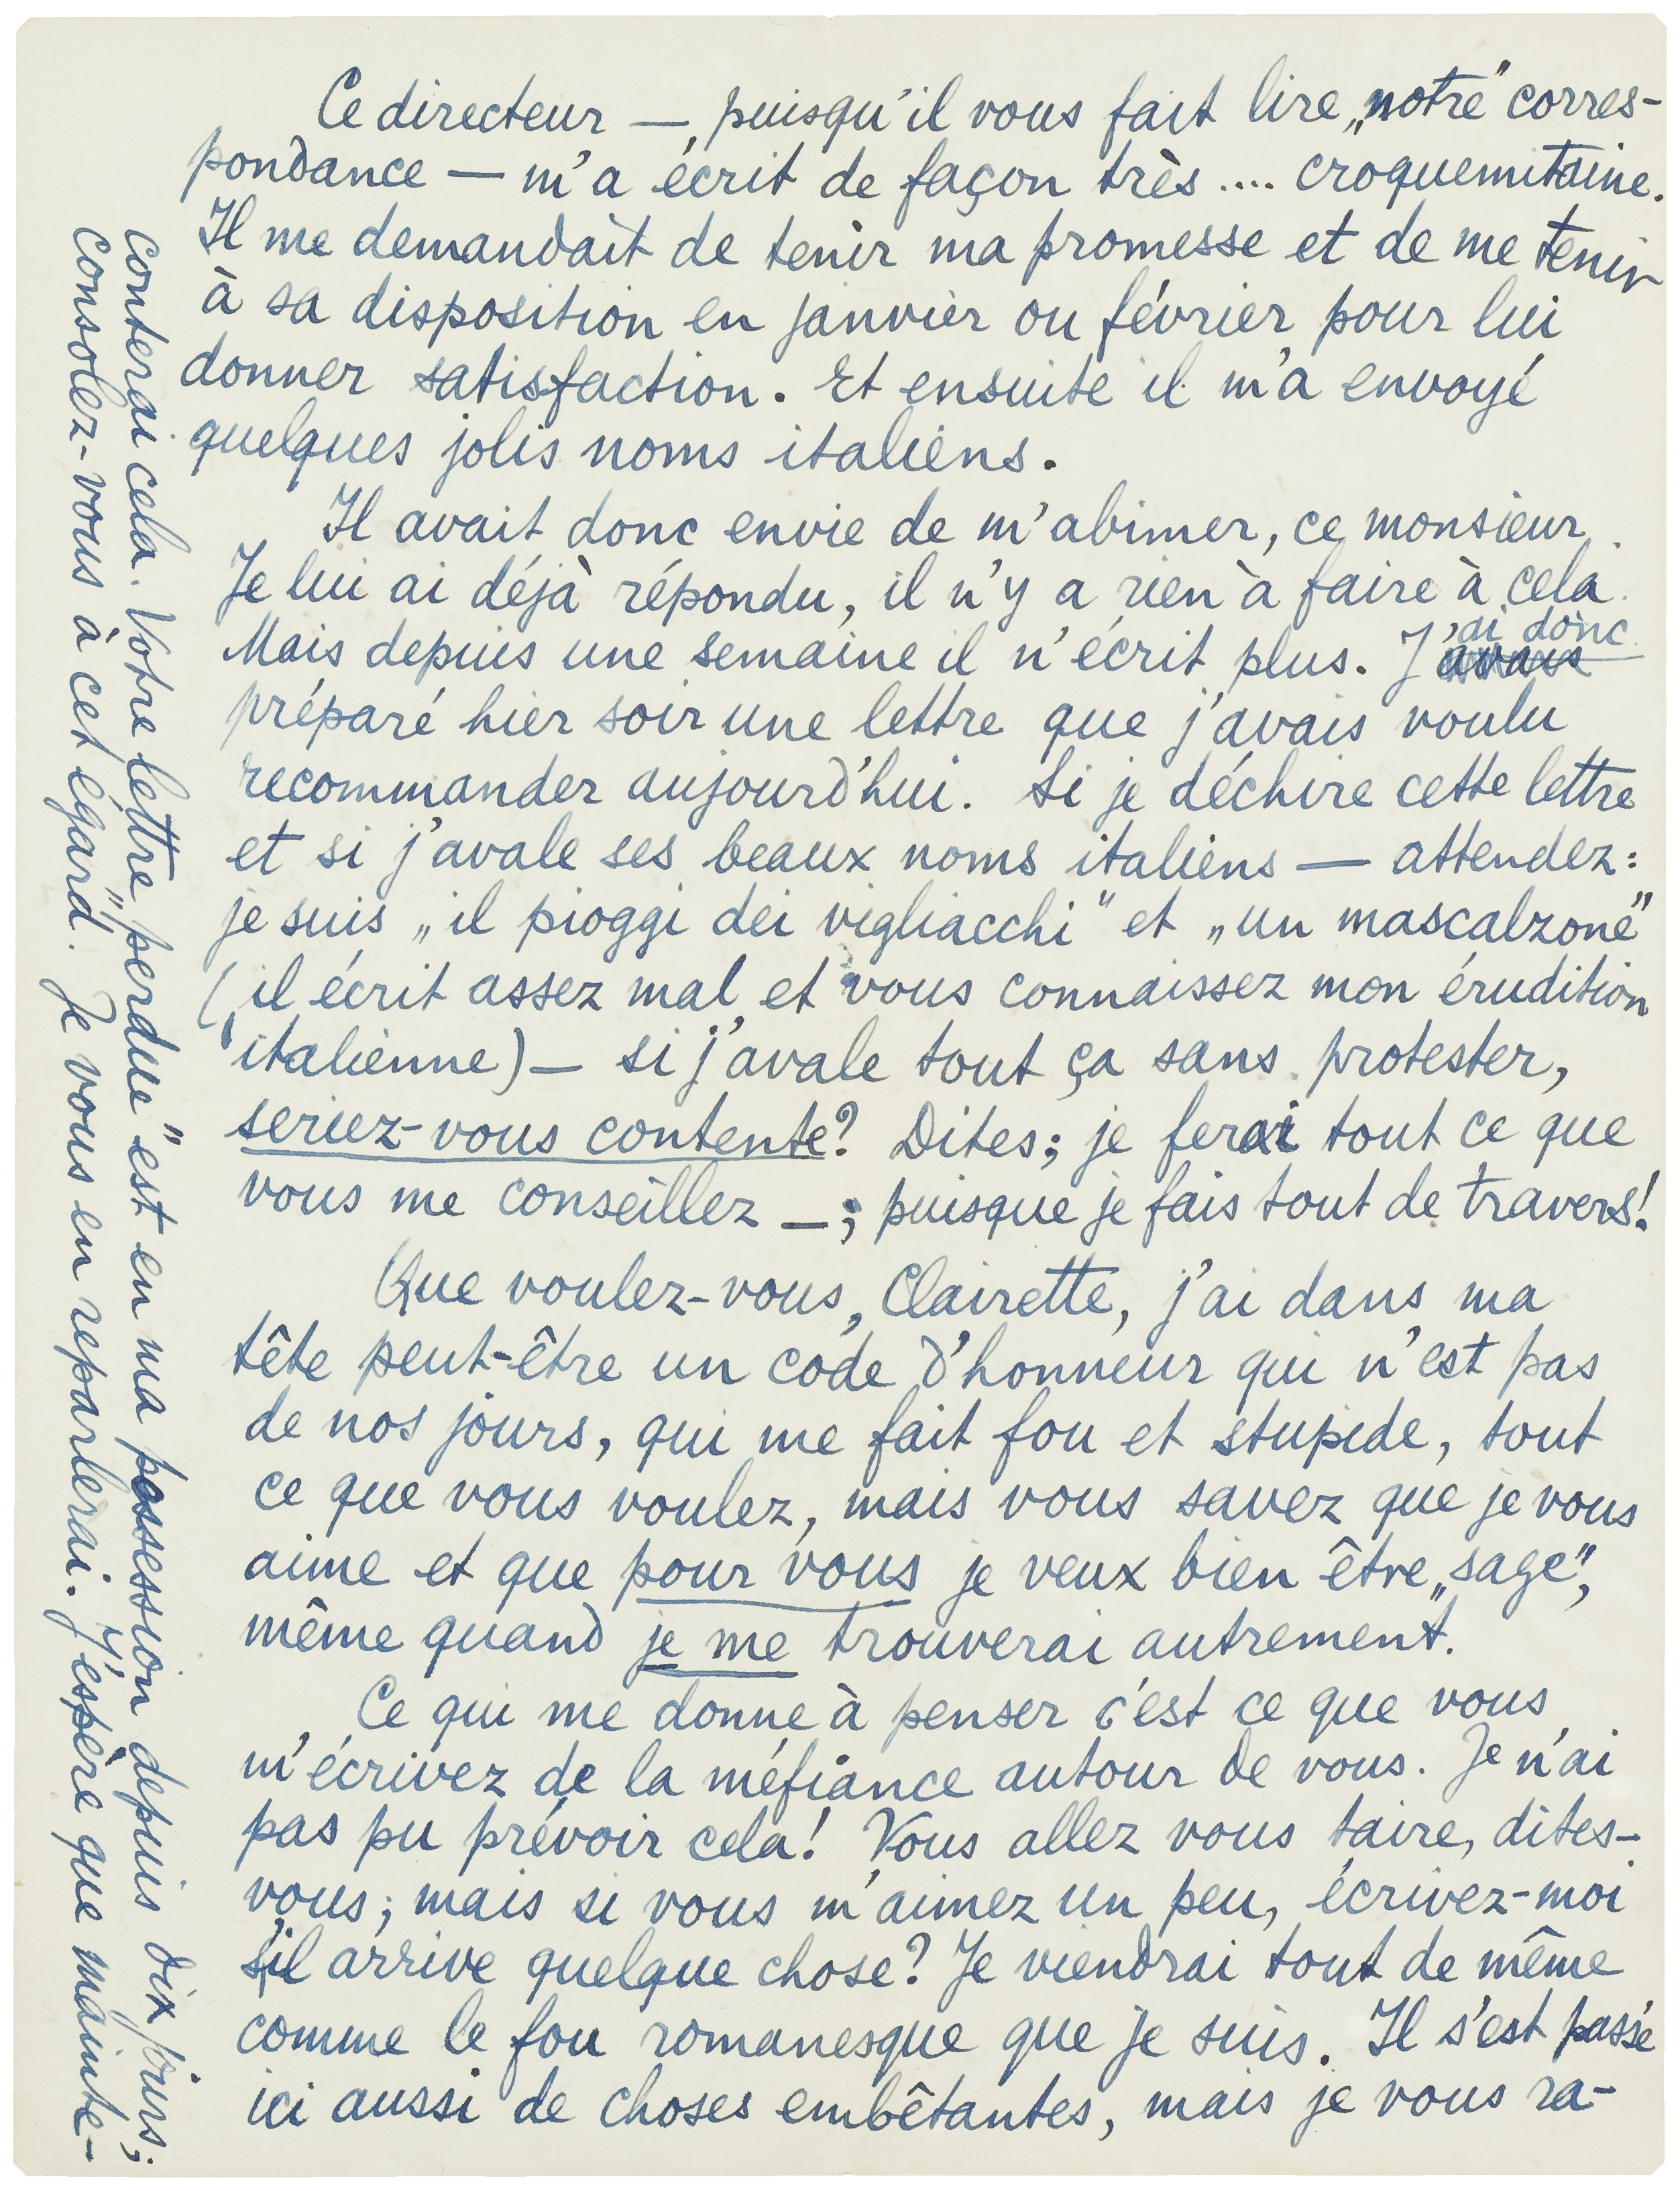 Ce directeur —, puisqu'il vous fait lire „notre" corres-
pondance — m'a écrit de façon très .... croquemitaine.
Il me demandait de tenir ma promesse et de me tenir
à sa disposition en janvier ou février pour lui
donner satisfaction. Et ensuite il m'a envoyé
quelques jolis noms italiens.
Il avait donc envie de m'abimer, ce monsieur.
Je lui ai déjà répondu, il n'y a rien à faire à cela.
Mais depuis une semaine il n'écrit plus. J'ai donc
préparé hier soir une lettre que j'avais voulu
recommander aujourd'hui. Si je déchire cette lettre
et si j'avale ses beaux noms italiens — attendez:
je suis „il pioggi dei vigliacchi" et „un mascalzone"
(il écrit assez mal et vous connaissez mon érudition
italienne) — si j'avale tout ça sans protester,
seriez-vous contente? Dites; je ferai tout ce que
vous me conseillez —; puisque je fais tout de travers!
Que voulez-vous, Clairette, j'ai dans ma
tête peut-être un code d'honneur qui n'est pas
de nos jours, qui me fait fou et stupide, tout
ce que vous voulez, mais vous savez que je vous
aime et que pour vous je veux bien être „sage",
même quand je me trouverai autrement.
Ce qui me donne à penser c'est ce que vous
m'écrivez de la méfiance autour de vous. Je n'ai
pas pu prévoir cela! Vous allez vous taire, dites-
vous; mais si vous m'aimez un peu, écrivez-moi
s'il arrive quelque chose? Je viendrai tout de même
comme le fou romanesque que je suis. Il s'est passé
ici aussi de choses embêtantes, mais je vous ra-
conterai cela. Votre lettre „perdue" est en ma possession depuis dix jours;
consolez-vous à cet égard. Je vous en reparlerai. J'espère que mainte-